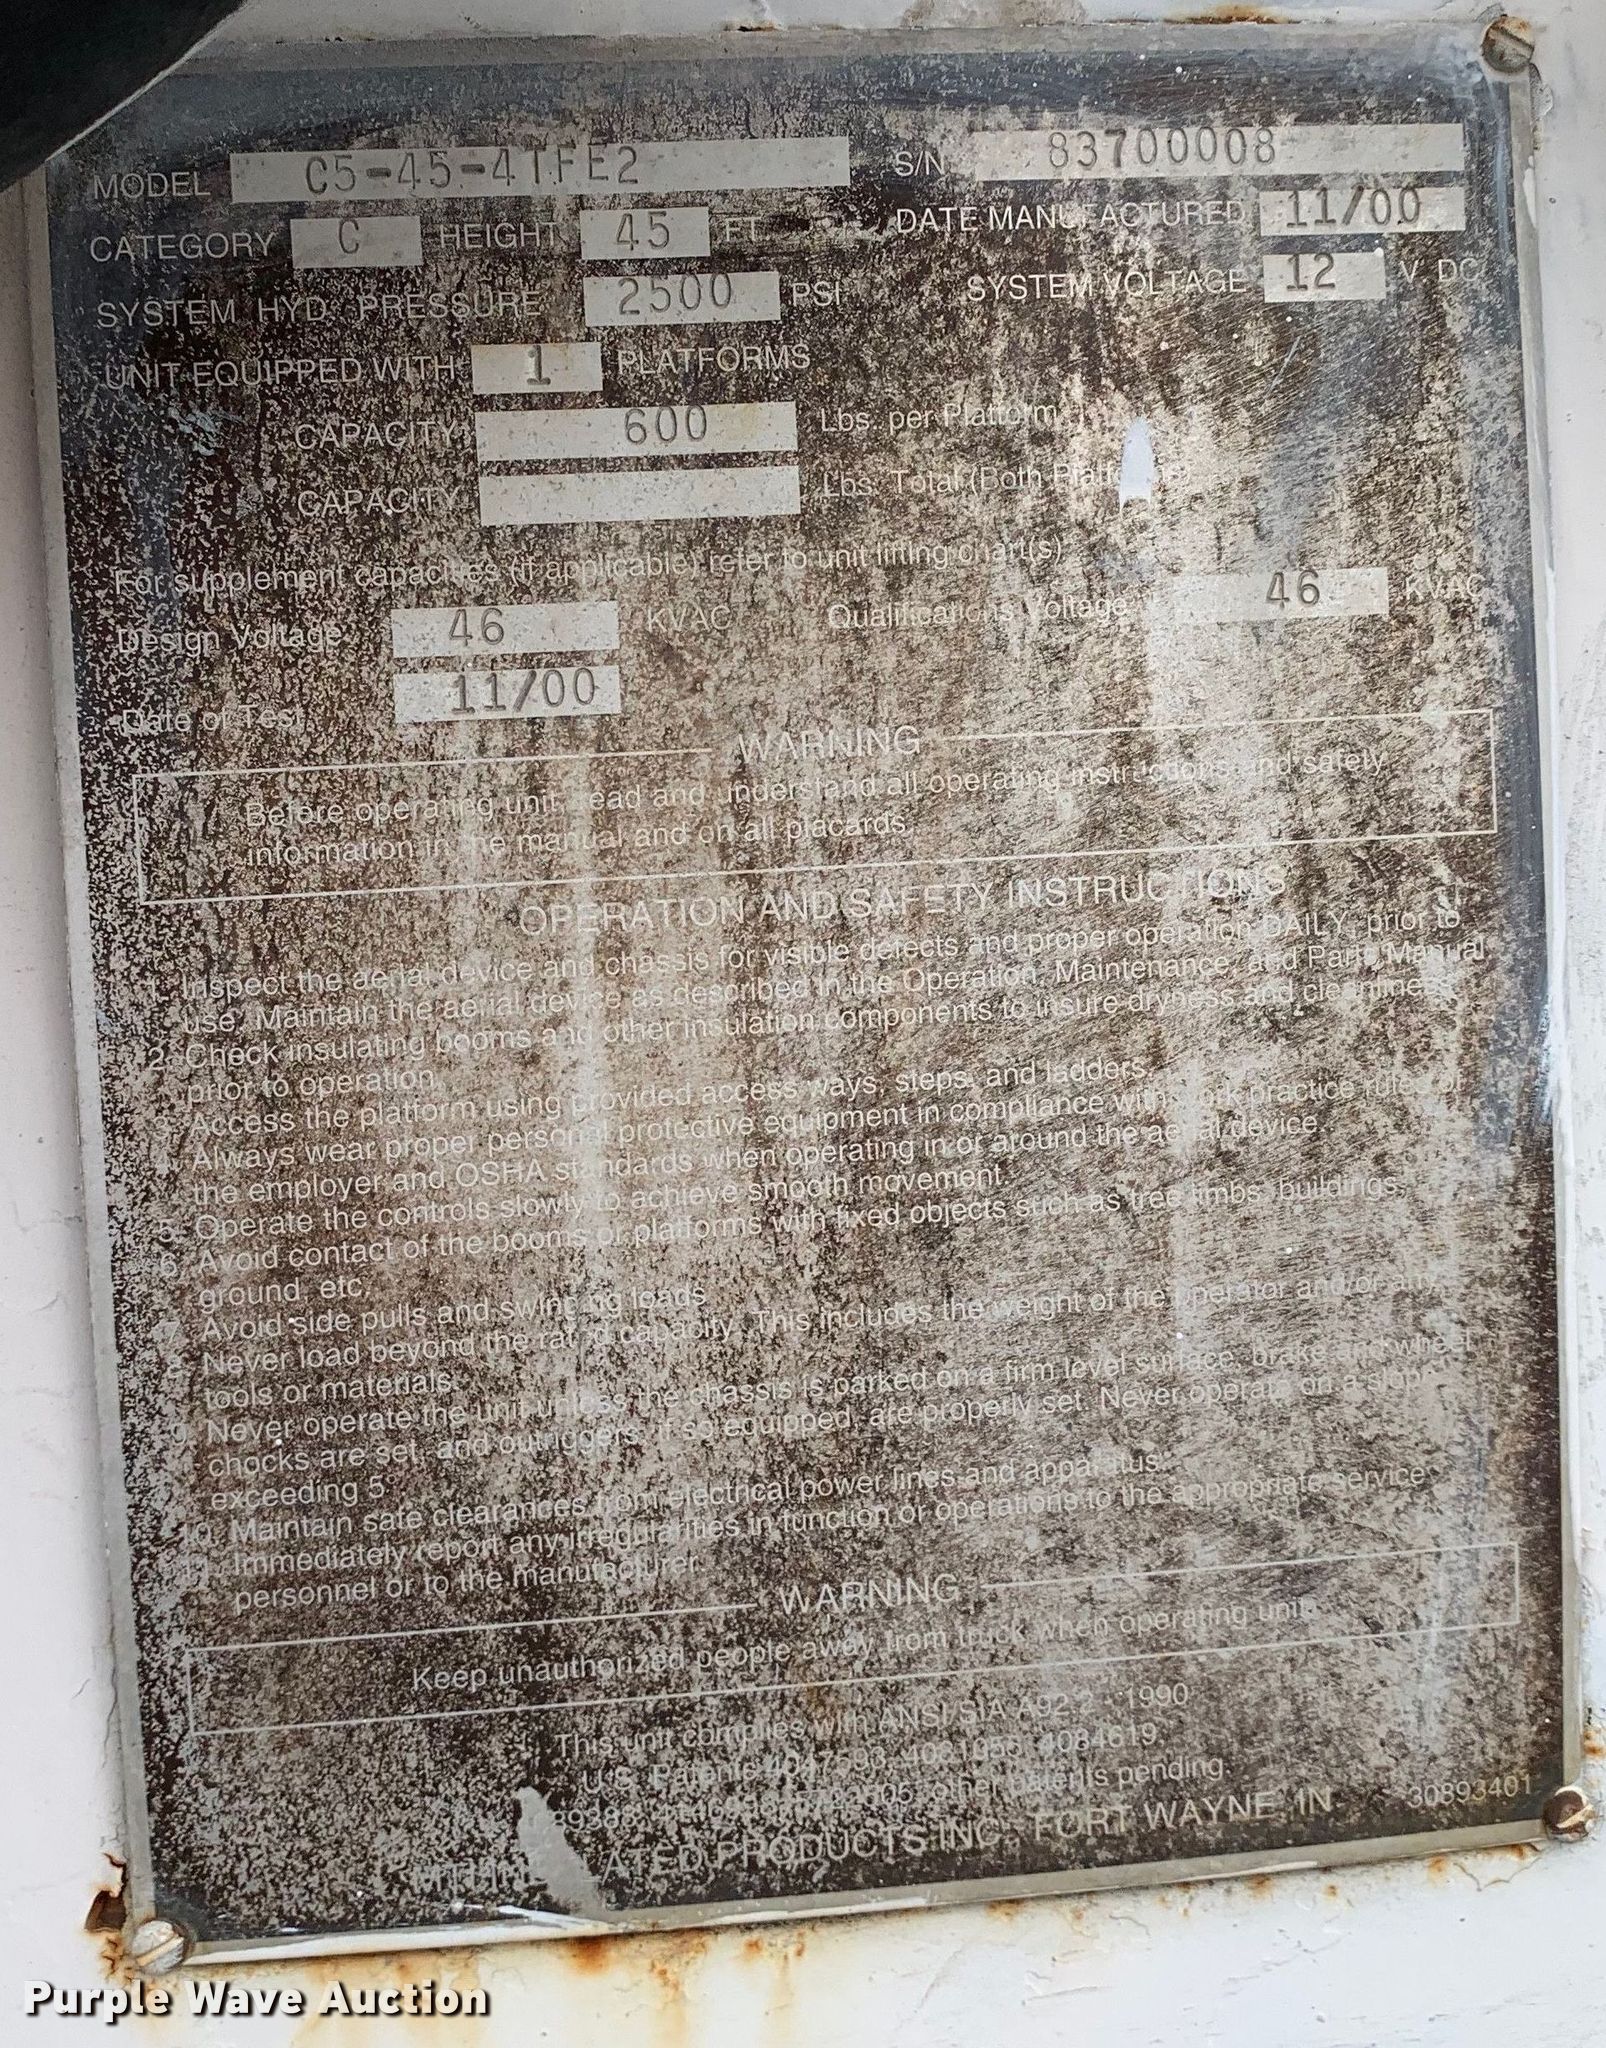 MODEL C5-45-4TFE2 S/N 83700008
CATEGORY C HEIGHT 45 FT DATE MANUFACTURED 11/00
SYSTEM HYD. PRESSURE 2500 PSI SYSTEM VOLTAGE 12 V DC
UNIT EQUIPPED WITH 1 PLATFORMS
CAPACITY 600 Lbs. per Platform
CAPACITY Lbs. Total (Both
For supplement capacities (if applicable) refer to unit lifting chart(s)
Design Voltage 46 KVAC Qualifications Voltage 46 KVAC
Date of Test 11/00
WARNING
Before operating unit, read and understand all operating instructions and safety
information in the manual and on all placards.
OPERATION AND SAFETY INSTRUCTIONS
1. Inspect the aerial device and chassis for visible defects and proper operation DAILY, prior to
use. Maintain the aerial device as described in the Operation, Maintenance, and Parts Manual
2. Check insulating booms and other insulation components to insure dryness and cleanliness
prior to operation.
3. Access the platform using provided access ways, steps, and ladders.
4. Always wear proper personal protective equipment in compliance with work practice rules of
the employer and OSHA standards when operating in or around the aerial device.
5. Operate the controls slowly to achieve smooth movement.
6. Avoid contact of the booms or platforms with fixed objects such as tree limbs, buildings,
ground, etc.
7. Avoid side pulls and swinging loads.
8. Never load beyond the rated capacity. This includes the weight of the operator and/or any
tools or materials.
9. Never operate the unit unless the chassis is parked on a firm level surface, brake and wheel
chocks are set, and outriggers, if so equipped, are properly set. Never operate on a slope
exceeding 5°
10. Maintain safe clearances from electrical power lines and apparatus.
11. Immediately report any irregularities in function or operations to the appropriate service
personnel or to the manufacturer.
WARNING
Keep unauthorized people away from truck when operating unit.
This unit complies with ANSI/SIA A92.2 - 1990
U.S. Patents 4047593, 4084619.
other patents pending.
PRODUCTS INC., FORT WAYNE, IN. 30893401
Purple Wave Auction